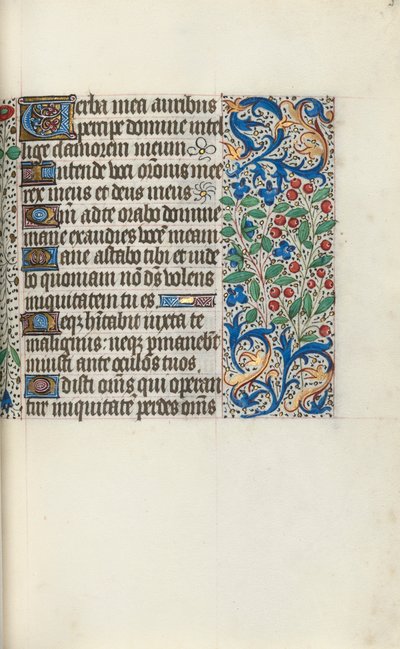 Verba mea auribus
percipe domine intel
lige clamorem meum
Intende voci orōnis mee
rex meus et deus meus
Qm ad te orabo domine
mane exaudies vocē meam
Mane astabo tibi et vide
bo quoniam nō ds̄ volens
iniquitatem tu es
Neq̄ hītabit iuxta te
malignus neq̄ pmanebt
iniusti ante oculos tuos
Odisti om̄s qui operan
tur iniquitatē perdes om̄s